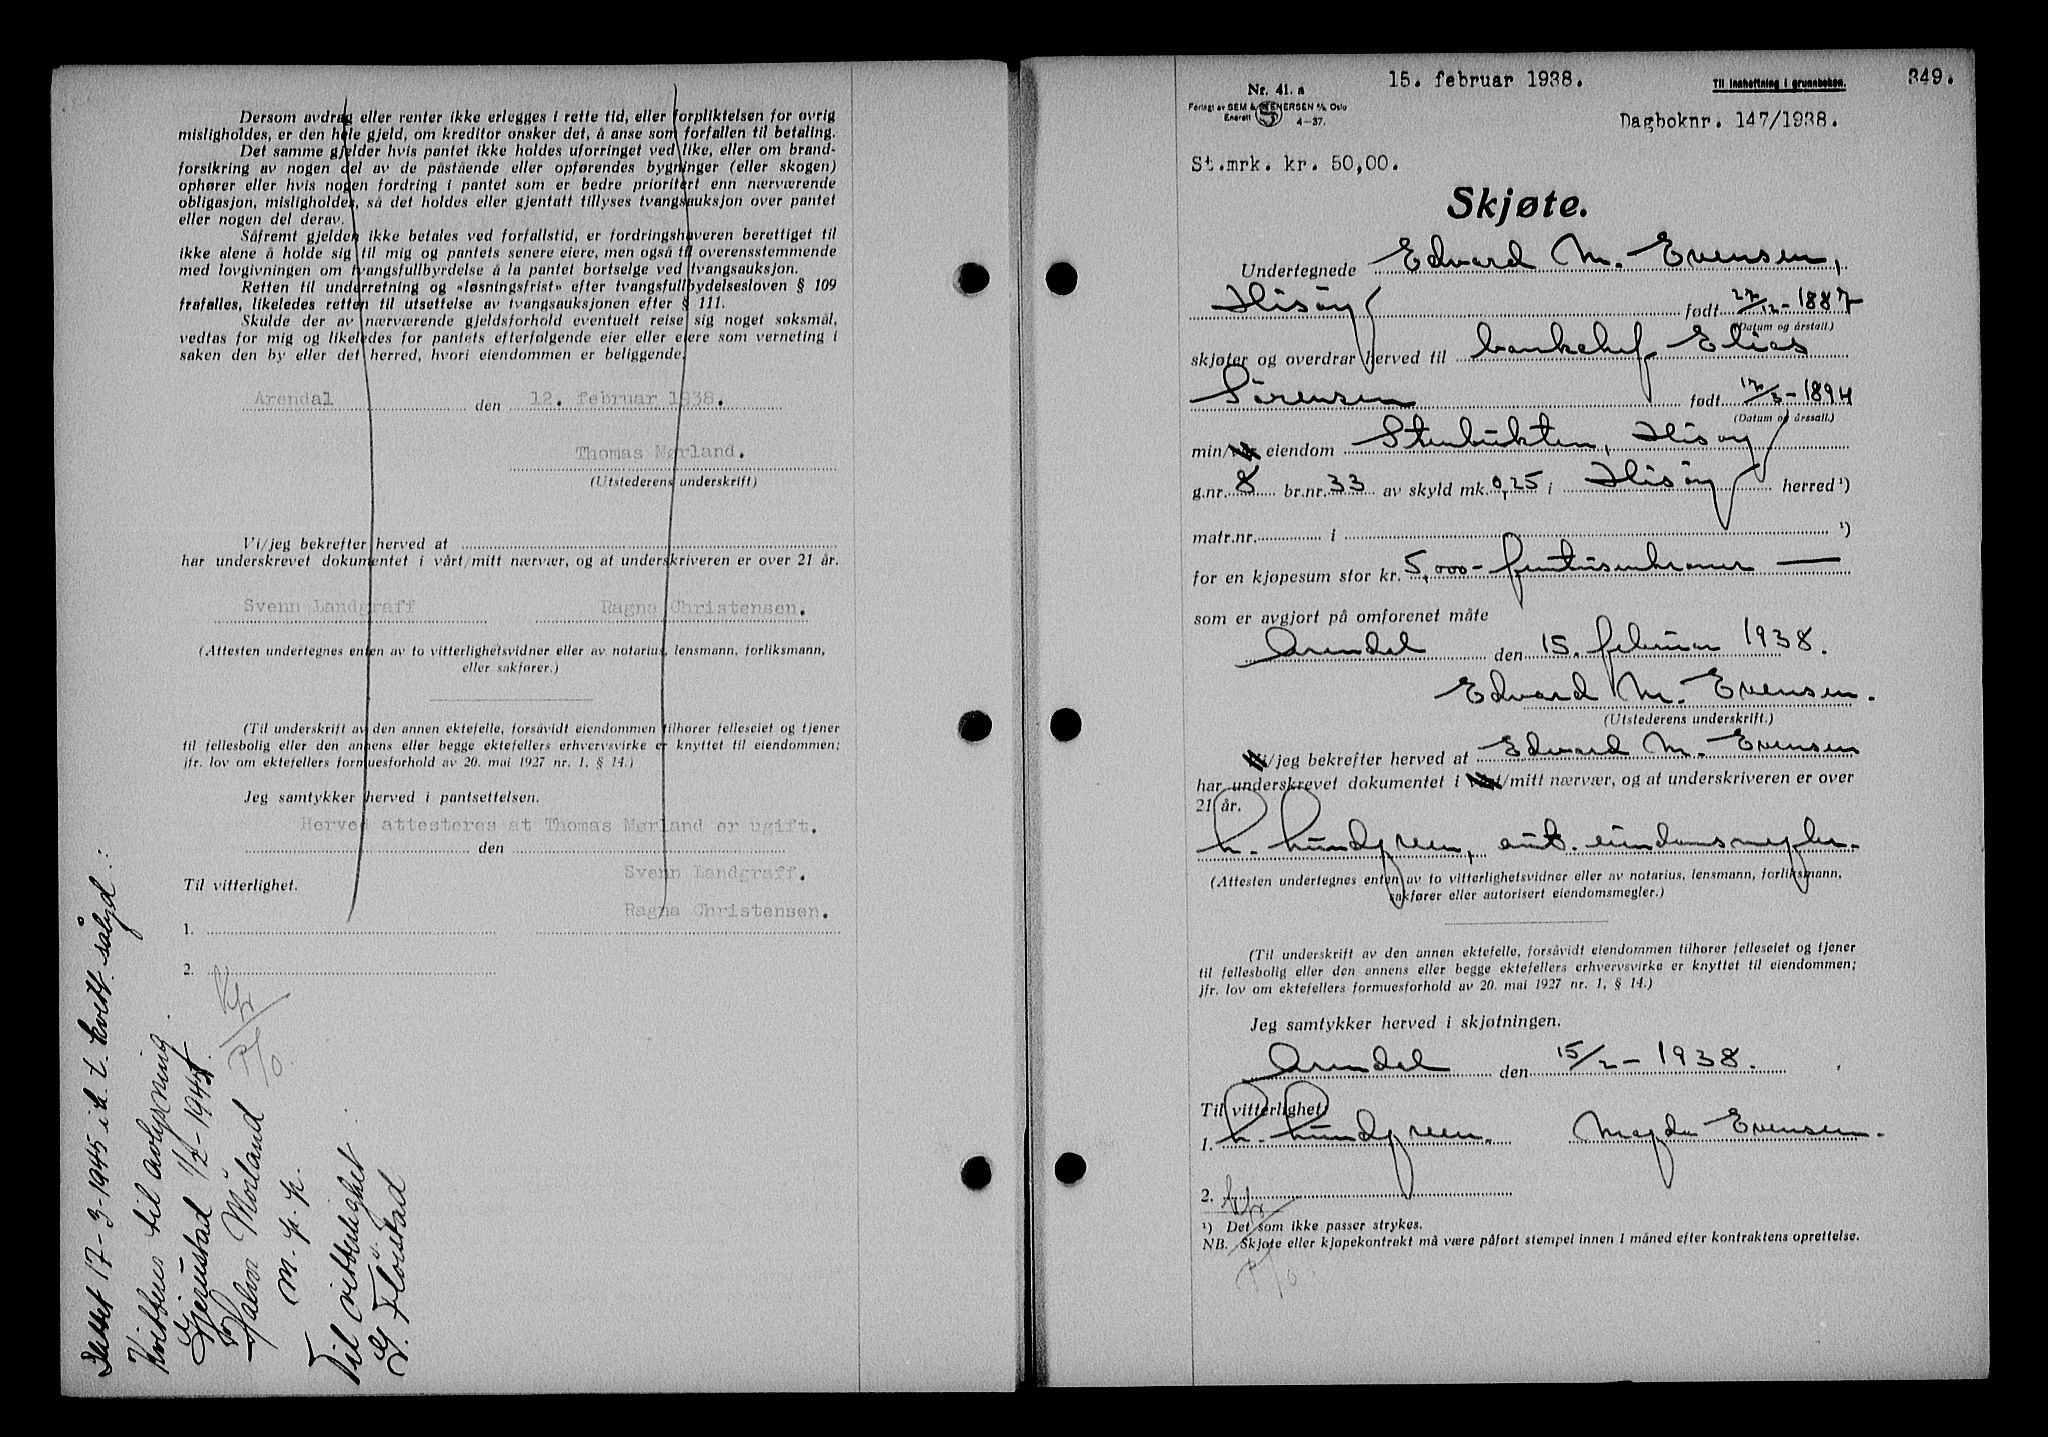 Dersom avdrag eller renter ikke erlegges i rette tid, eller forpliktelsen for øvrig
misligholdes, er den hele gjeld, om kreditor ønsker det, å anse som forfallen til betaling.
Det samme gjelder hvis pantet ikke holdes uforringet ved like, eller om brand-
forsikring av nogen del av de påstående eller opførendes bygninger (eller skogen)
ophører eller hvis nogen fordring i pantet som er bedre prioritert enn nærværende
obligasjon, misligholdes, så det holdes eller gjentatt tillyses tvangsauksjon over pantet
eller nogen del derav.
Såfremt gjelden ikke betales ved forfallstid, er fordringshaveren berettiget til
ikke alene å holde sig til mig og pantets senere eiere, men også til overensstemmende
med lovgivningen om tvangsfullbyrdelse å la pantet bortselge ved tvangsauksjon.
Retten til underretning og «løsningsfrist» efter tvangsfullbydelsesloven § 109
frafalles, likeledes retten til utsettelse av tvangsauksjonen efter § 111.
Skulde der av nærværende gjeldsforhold eventuelt reise sig noget søksmål,
vedtas for mig og likeledes for pantets efterfølgende eier eller eiere som verneting i
saken den by eller det herred, hvori eiendommen er beliggende.
Arendal den 12. februar 1938.
Thomas Mørland.
(Utstederens underskrift)
Vi/jeg bekrefter herved at
har underskrevet dokumentet i vårt/mitt nærvær, og at underskriveren er over 21 år.
Svenn Landgraff Ragna Christensen.
(Attesten undertegnes enten av to vitterlighetsvidner eller av notarius, lensmann, forliksmann,
eller sakfører.)
(Til underskrift av den annen ektefelle, forsåvidt eiendommen tilhører felleseiet og tjener
til fellesbolig eller den annens eller begge ektefellers erhvervsvirke er knyttet til eiendommen;
jfr. lov om ektefellers formuesforhold av 20. mai 1927 nr. 1, § 14.)
Jeg samtykker herved i pantsettelsen.
Herved attesteres at Thomas Mørland er ugift.
den
Svenn Landgraff.
Til vitterlighet.
Ragna Christensen.
1.
2.
Slettet 17-3-1945 i h. t. kvitt. sålyd:
Kvitteres til avlysning.
Gjerustad 1/2-1945.
Halvor Mörland
m. p. p.
Til vitterlighet:
G. Flöistad
Nr. 41. a
Forlagt av SEM & STENERSEN A/S, Oslo
Enerett S 4-37.
15. februar 1938.
Til innheftning i grunnboken.
349.
Dagboknr. 147/1938.
St.mrk. kr. 50,00.
Skjøte.
Undertegnede Edvard M. Evensen,
Hisöy født 27/12-1887
(Datum og årstall.)
skjøter og overdrar herved til bankchef Elias
Sörensen født 17/3-1894
(Datum og årstall.)
min/vår eiendom Stenbukten, Hisöy
g.nr. 8 br.nr. 33 av skyld mk. 0,25 i Hisöy herred ¹)
matr.nr. i ¹)
for en kjøpesum stor kr. 5,000- femtusenkroner —
som er avgjort på omforenet måte
Arendal den 15. februar 1938.
Edvard M. Evensen.
(Utstederens underskrift.)
Vi/jeg bekrefter herved at Edvard M. Evensen
har underskrevet dokumentet i vårt/mitt nærvær, og at underskriveren er over
21 år.
h. Lundgreen, aut. eiendomsmegler.
(Attesten undertegnes enten av to vitterlighetsvidner eller av notarius, lensmann, forliksmann,
sakfører eller autorisert eiendomsmegler.)
(Til underskrift av den annen ektefelle, forsåvidt eiendommen tilhører felleseiet og tjener
til fellesbolig eller den annens eller begge ektefellers erhvervsvirke er knyttet til eiendommen;
jfr. lov om ektefellers formuesforhold av 20. mai 1927 nr. 1, § 14.)
Jeg samtykker herved i skjøtningen.
Arendal den 15/2-1938.
Til vitterlighet:
1. h. Lundgreen. Magda Evensen.
2.
¹) Det som ikke passer strykes.
NB. Skjøte eller kjøpekontrakt må være påført stempel innen 1 måned efter kontraktens oprettelse.